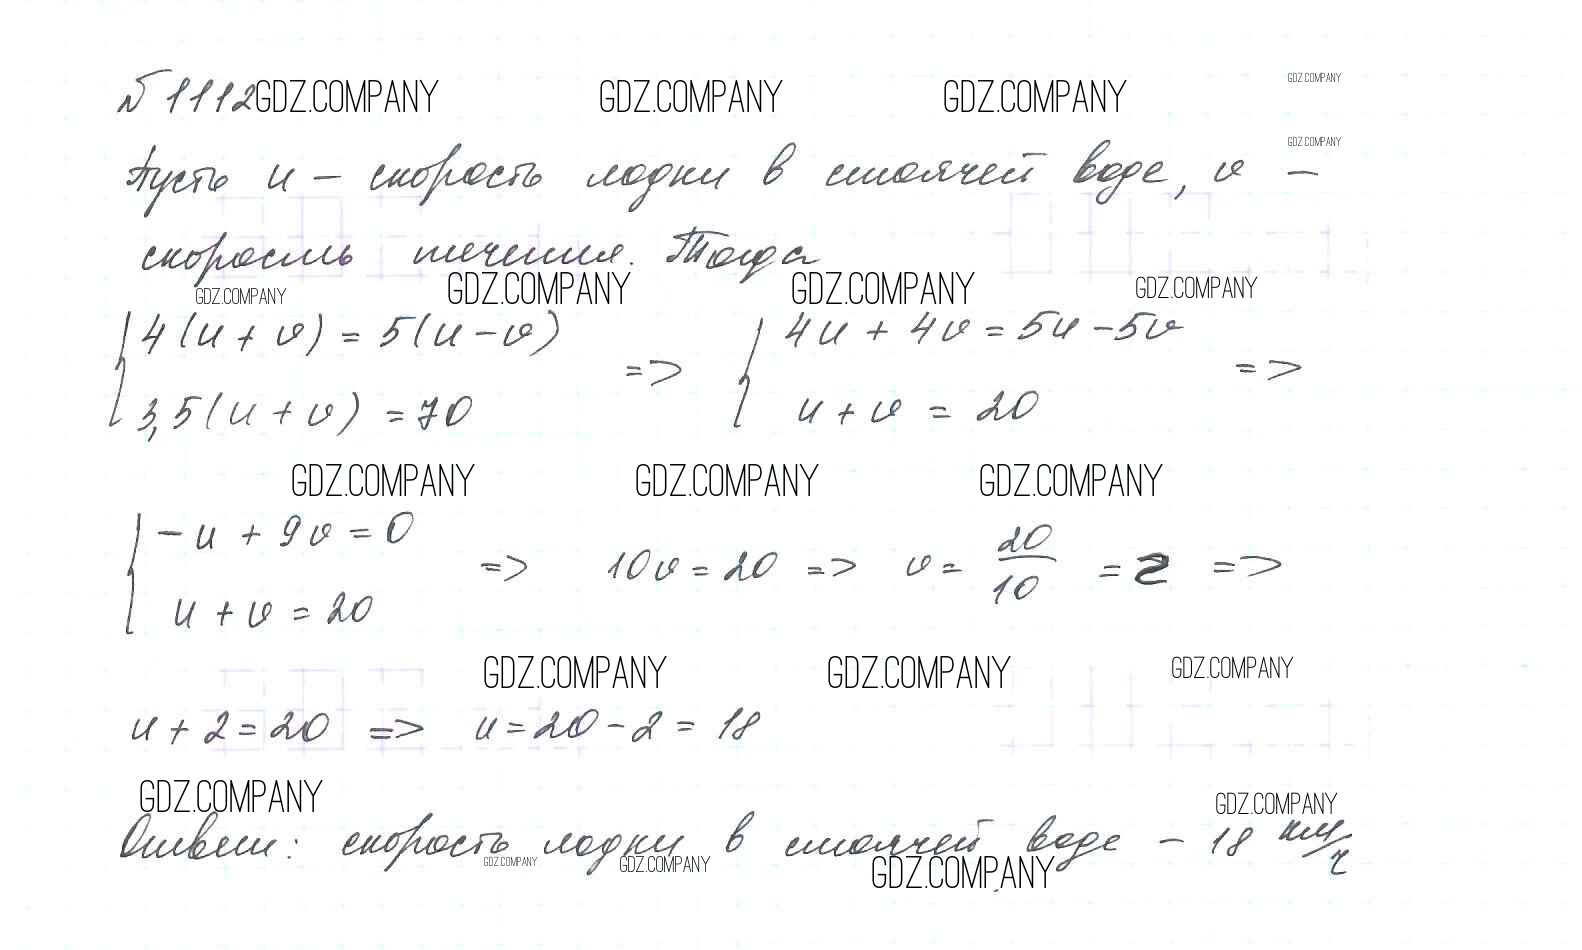 № 1112 GDZ.COMPANY GDZ.COMPANY GDZ.COMPANY GDZ.COMPANY
GDZ.COMPANY
Пусть u – скорость лодки в стоячей воде, v –
скорость течения. Тогда
GDZ.COMPANY GDZ.COMPANY GDZ.COMPANY GDZ.COMPANY
{ 4(u + v) = 5(u – v) => { 4u + 4v = 5u – 5v =>
3,5(u + v) = 70 u + v = 20
GDZ.COMPANY GDZ.COMPANY GDZ.COMPANY
{ – u + 9v = 0 => 10v = 20 => v = 20/10 = 2 =>
u + v = 20
GDZ.COMPANY GDZ.COMPANY GDZ.COMPANY
u + 2 = 20 => u = 20 – 2 = 18
GDZ.COMPANY GDZ.COMPANY
Ответ: скорость лодки в стоячей воде – 18 км/ч
GDZ.COMPANY GDZ.COMPANY GDZ.COMPANY